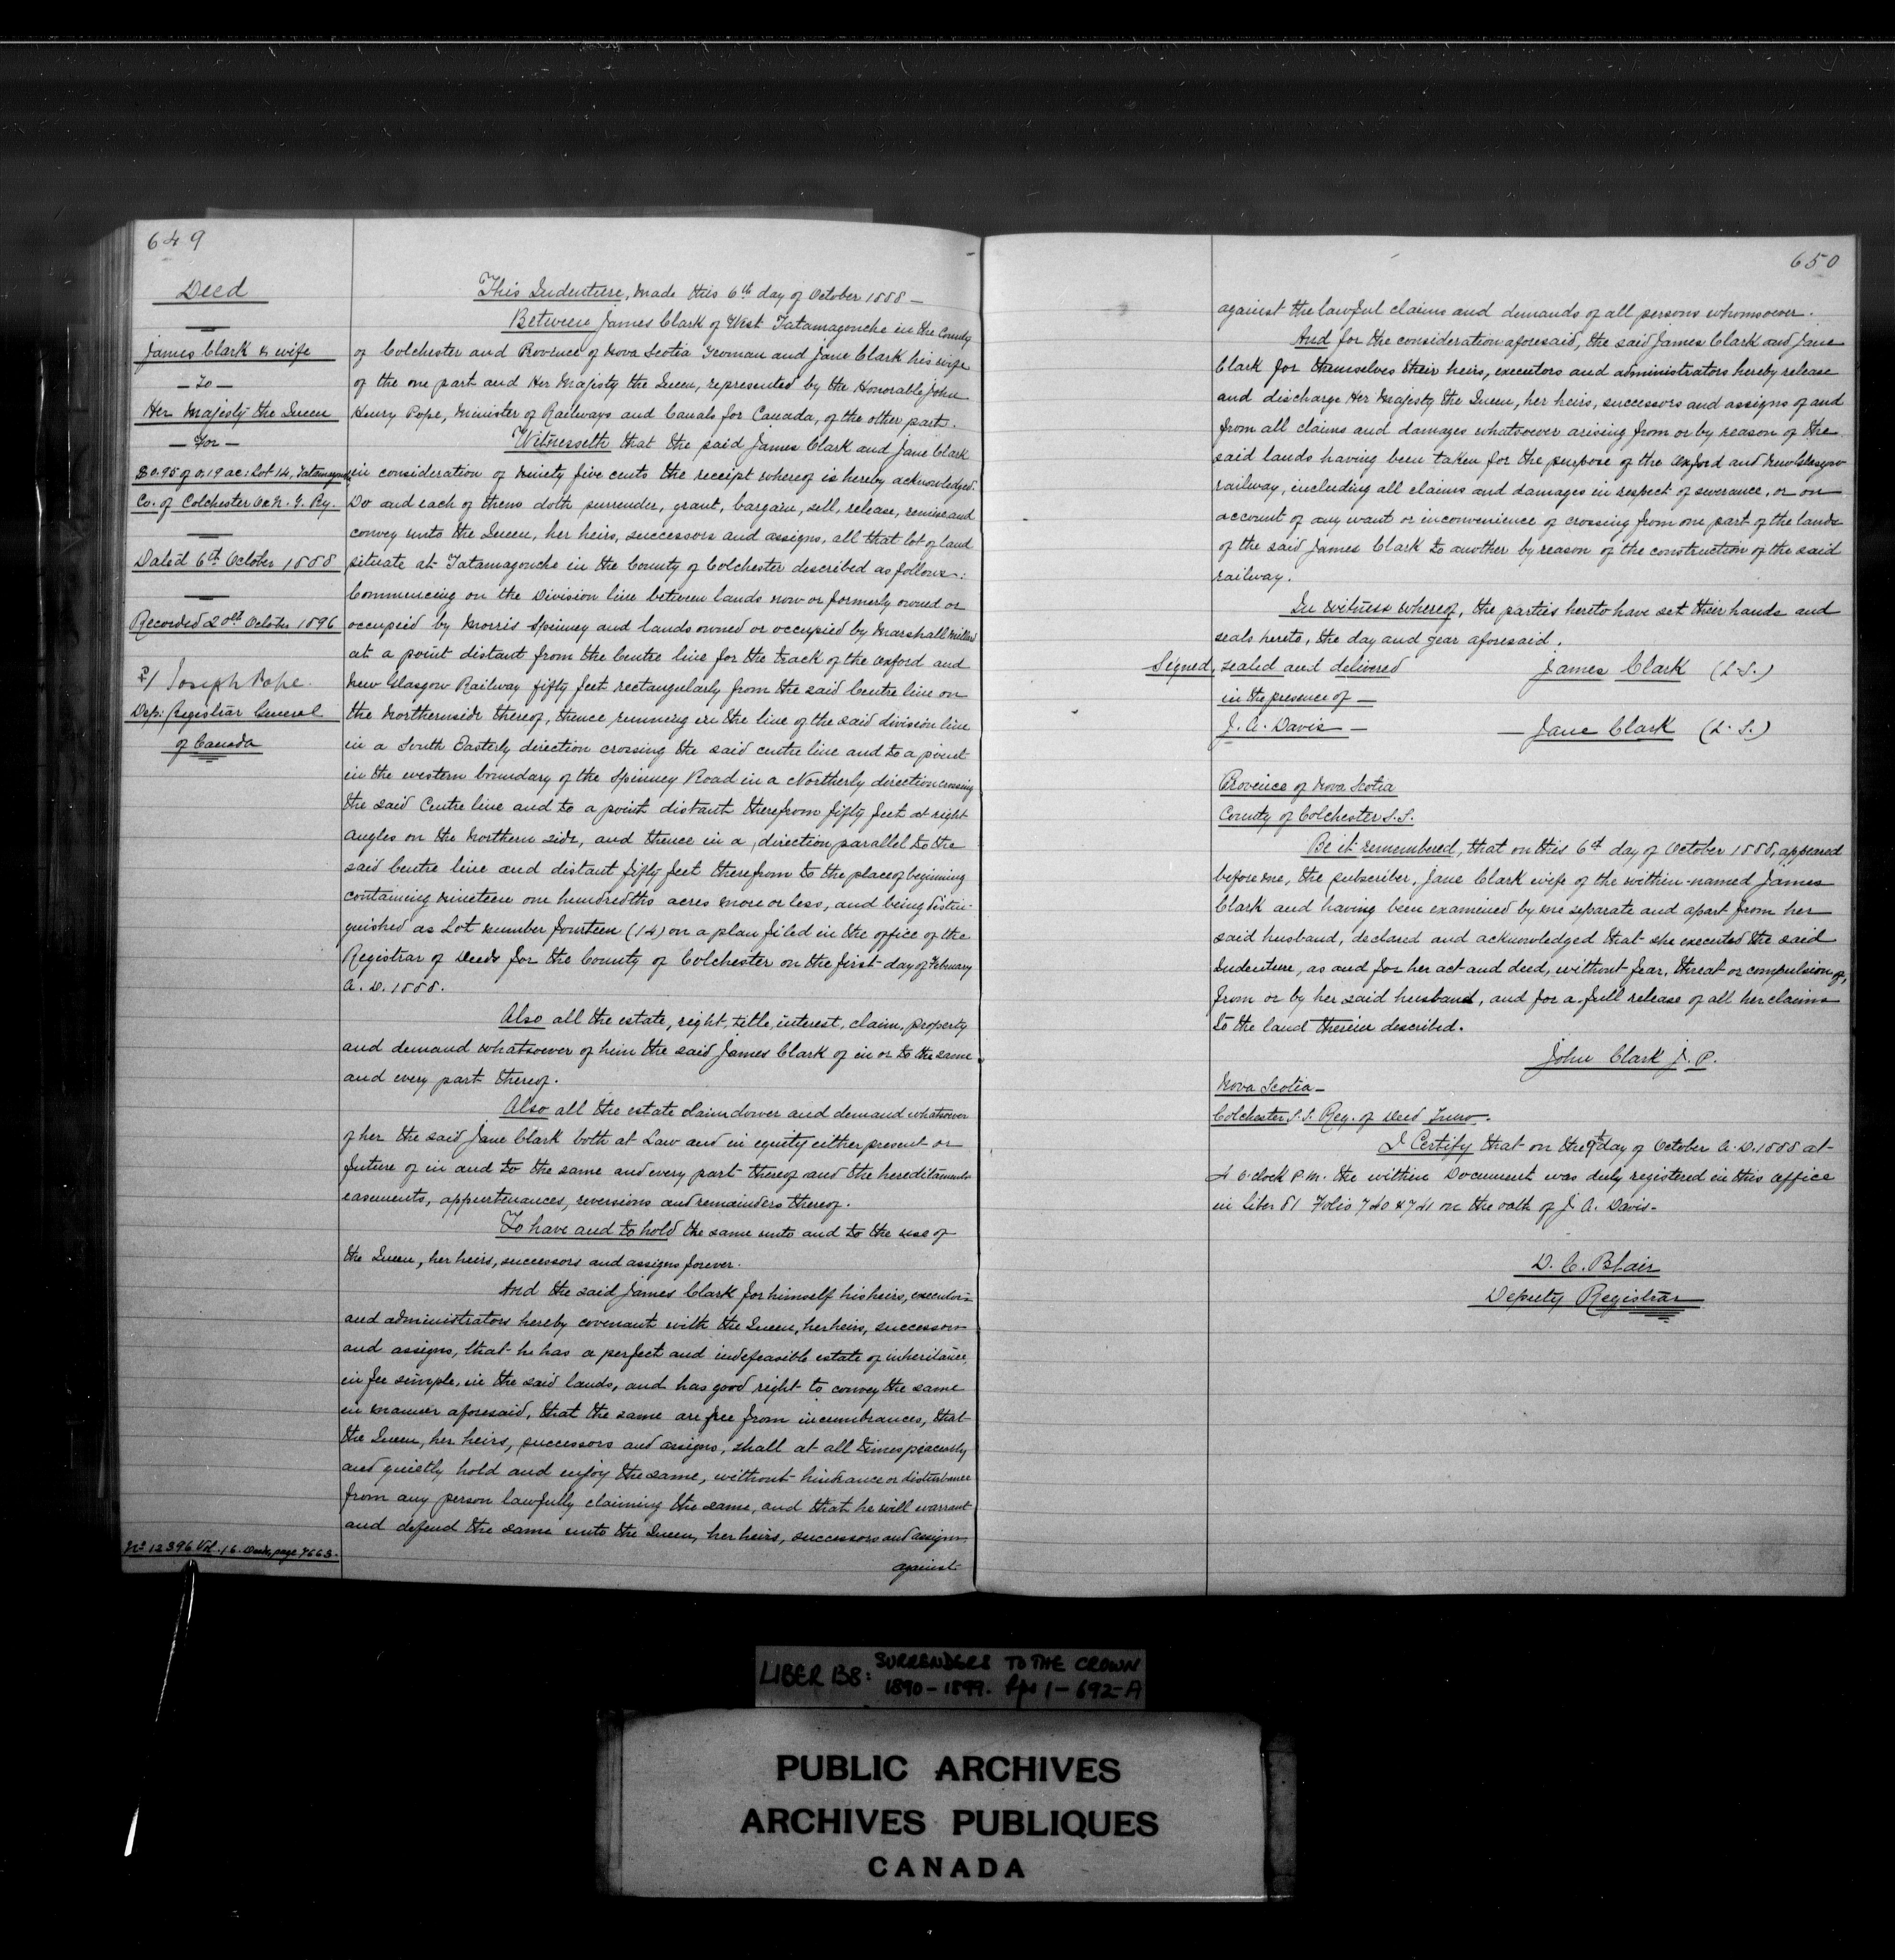 649
Deed
James Clark & wife
— To —
Her Majesty the Queen
— For —
$0.95 of 0.19 ac: Lot 14, Tatamagouche
Co. of Colchester O & N. G. Ry.
Dated 6th October 1888
Recorded 20th October 1896
Joseph Pope
Dep: Registrar General
of Canada
No 12396 Vol. 16. Deeds, page 7663.
This Indenture, made this 6th day of October 1888 —
Between James Clark of West Tatamagouche in the County
of Colchester and Province of Nova Scotia Yeoman and Jane Clark his wife
of the one part and Her Majesty the Queen, represented by the Honorable John
Henry Pope, Minister of Railways and Canals for Canada, of the other part.
Witnesseth that the said James Clark and Jane Clark
in consideration of Ninety five cents the receipt whereof is hereby acknowledged.
Do and each of them doth surrender, grant, bargain, sell, release, remise and
convey unto the Queen, her heirs, successors and assigns, all that lot of land
situate at Tatamagouche in the County of Colchester described as follows:
Commencing on the Division line between lands now or formerly owned or
occupied by Morris Spinney and lands owned or occupied by Marshall Millard
at a point distant from the Centre line for the track of the Oxford and
New Glasgow Railway fifty feet rectangularly from the said Centre line on
the Northernside thereof, thence running in the line of the said division line
in a South Easterly direction crossing the said centre line and to a point
in the western boundary of the Spinney Road in a Northerly direction crossing
the said Centre line and to a point distant therefrom fifty feet at right
angles on the Northern side, and thence in a direction parallel to the
said Centre line and distant fifty feet therefrom to the place of beginning
containing nineteen one hundredths acres more or less, and being distin-
guished as Lot number fourteen (14) on a plan filed in the office of the
Registrar of Deeds for the County of Colchester on the first day of February
A. D. 1888.
Also all the estate, right, title, interest, claim, property
and demand whatsoever of him the said James Clark of in or to the same
and every part thereof.
Also all the estate claim dower and demand whatsoever
of her the said Jane Clark both at Law and in equity either present or
future of in and to the same and every part thereof and the hereditaments
easements, appurtenances, reversions and remainders thereof.
To have and to hold the same unto and to the use of
the Queen, her heirs, successors and assigns forever.
And the said James Clark for himself his heirs, executors
and administrators hereby covenant with the Queen, her heirs, successors
and assigns, that he has a perfect and indefeasible estate of inheritance,
in fee simple, in the said lands, and has good right to convey the same
in manner aforesaid, that the same are free from incumbrances, that
the Queen, her heirs, successors and assigns, shall at all times peaceably
and quietly hold and enjoy the same, without hindrance or disturbance
from any person lawfully claiming the same, and that he will warrant
and defend the same unto the Queen, her heirs, successors and assigns,
against
650
against the lawful claims and demands of all persons whomsoever.
And for the consideration aforesaid, the said James Clark and Jane
Clark for themselves their heirs, executors and administrators hereby release
and discharge Her Majesty the Queen, her heirs, successors and assigns of and
from all claims and damages whatsoever arising from or by reason of the
said lands having been taken for the purpose of the Oxford and New Glasgow
railway, including all claims and damages in respect of severance, or on
account of any want or inconvenience of crossing from one part of the lands
of the said James Clark to another by reason of the construction of the said
railway.
In witness whereof, the parties hereto have set their hands and
seals hereto, the day and year aforesaid.
Signed, sealed and delivered James Clark (L.S.)
in the presence of —
J. A. Davis — — Jane Clark (L. S.)
Province of Nova Scotia
County of Colchester S.S.
Be it remembered, that on this 6th day of October 1888, appeared
before me, the subscriber, Jane Clark wife of the within named James
Clark and having been examined by me separate and apart from her
said husband, declared and acknowledged that she executed the said
Indenture, as and for her act and deed, without fear, threat or compulsion of,
from or by her said husband, and for a full release of all her claims
to the land therein described.
John Clark J. P.
Nova Scotia —
Colchester S.S. Reg. of Deed Truro —
I Certify that on the 9th day of October A. D. 1888 at
4 o'clock P.M. the within Document was duly registered in this office
in Liber 81 Folio 740 & 741 on the oath of J. A. Davis.
D. C. Blair
Deputy Registrar
LIBER B8: SURRENDERS TO THE CROWN
1890-1899. Pps 1-692-A
PUBLIC ARCHIVES
ARCHIVES PUBLIQUES
CANADA